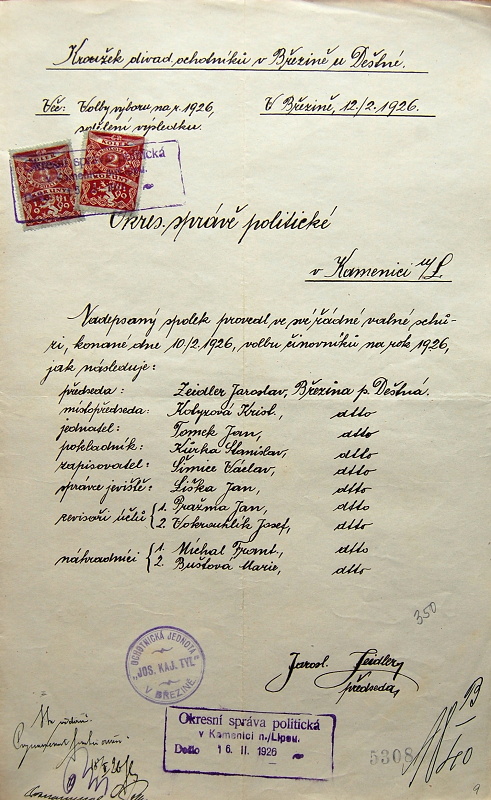 Kroužek divad. ochotníků v Březině u Deštné.
Věc: Volby výboru na r. 1926,
sdělení výsledku.
V Březině, 12/2. 1926.
KOLEK
2
KORUNY
Okresní správa politická
Okres. správě politické
v Kamenici n/L.
Nadepsaný spolek provedl ve své řádné valné schů-
zi, konané dne 10/2. 1926, volbu činovníků na rok 1926,
jak následuje:
předseda: Zeidler Jaroslav, Březina p. Deštná.
místopředseda: Kotyzová Krist., dtto
jednatel: Tomek Jan, dtto
pokladník: Kůrka Stanislav, dtto
zapisovatel: Šimice Václav, dtto
správce jeviště: Liška Jan, dtto
revisoři účtů { 1. Pražma Jan, dtto
2. Vokrouhlík Josef, dtto
náhradníci { 1. Michal Front., dtto
2. Buštová Marie, dtto
350
OCHOTNICKÁ JEDNOTA
„JOS. KAJ. TYL”
V BŘEZINĚ
Jarosl. Zeidler
předseda,
Okresní správa politická
v Kamenici n./Lipou.
Došlo 16. II. 1926
5308
B
9